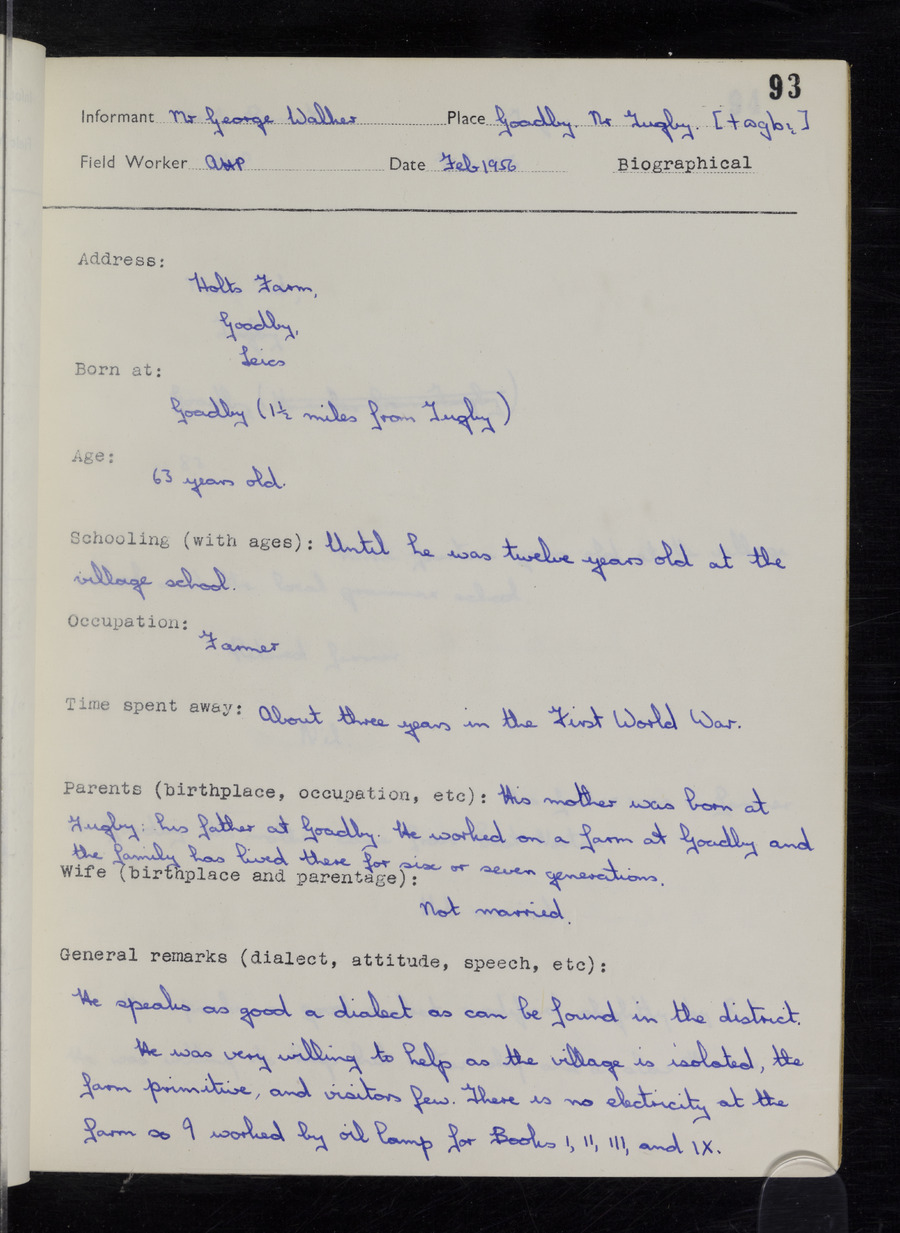 93
Informant Mr George Walker Place Goadby. Nr Tugby. [tʊgbɪ]
Field Worker AHP Date Feb 1956 Biographical
Address:
Holts Farm,
Goadby,
Leics
Born at:
Goadby (1½ miles from Tugby)
Age:
63 years old.
Schooling (with ages): Until he was twelve years old at the
village school.
Occupation:
Farmer
Time spent away: About three years in the First World War.
Parents (birthplace, occupation, etc): His mother was born at
Tugby: his father at Goadby. He worked on a farm at Goadby and
the family has lived there for six or seven generations.
Wife (birthplace and parentage):
Not married.
General remarks (dialect, attitude, speech, etc):
He speaks as good a dialect as can be found in the district.
He was very willing to help as the village is isolated, the
farm primitive, and visitors few. There is no electricity at the
farm so I worked by oil lamp for Books I, II, III, and IX.